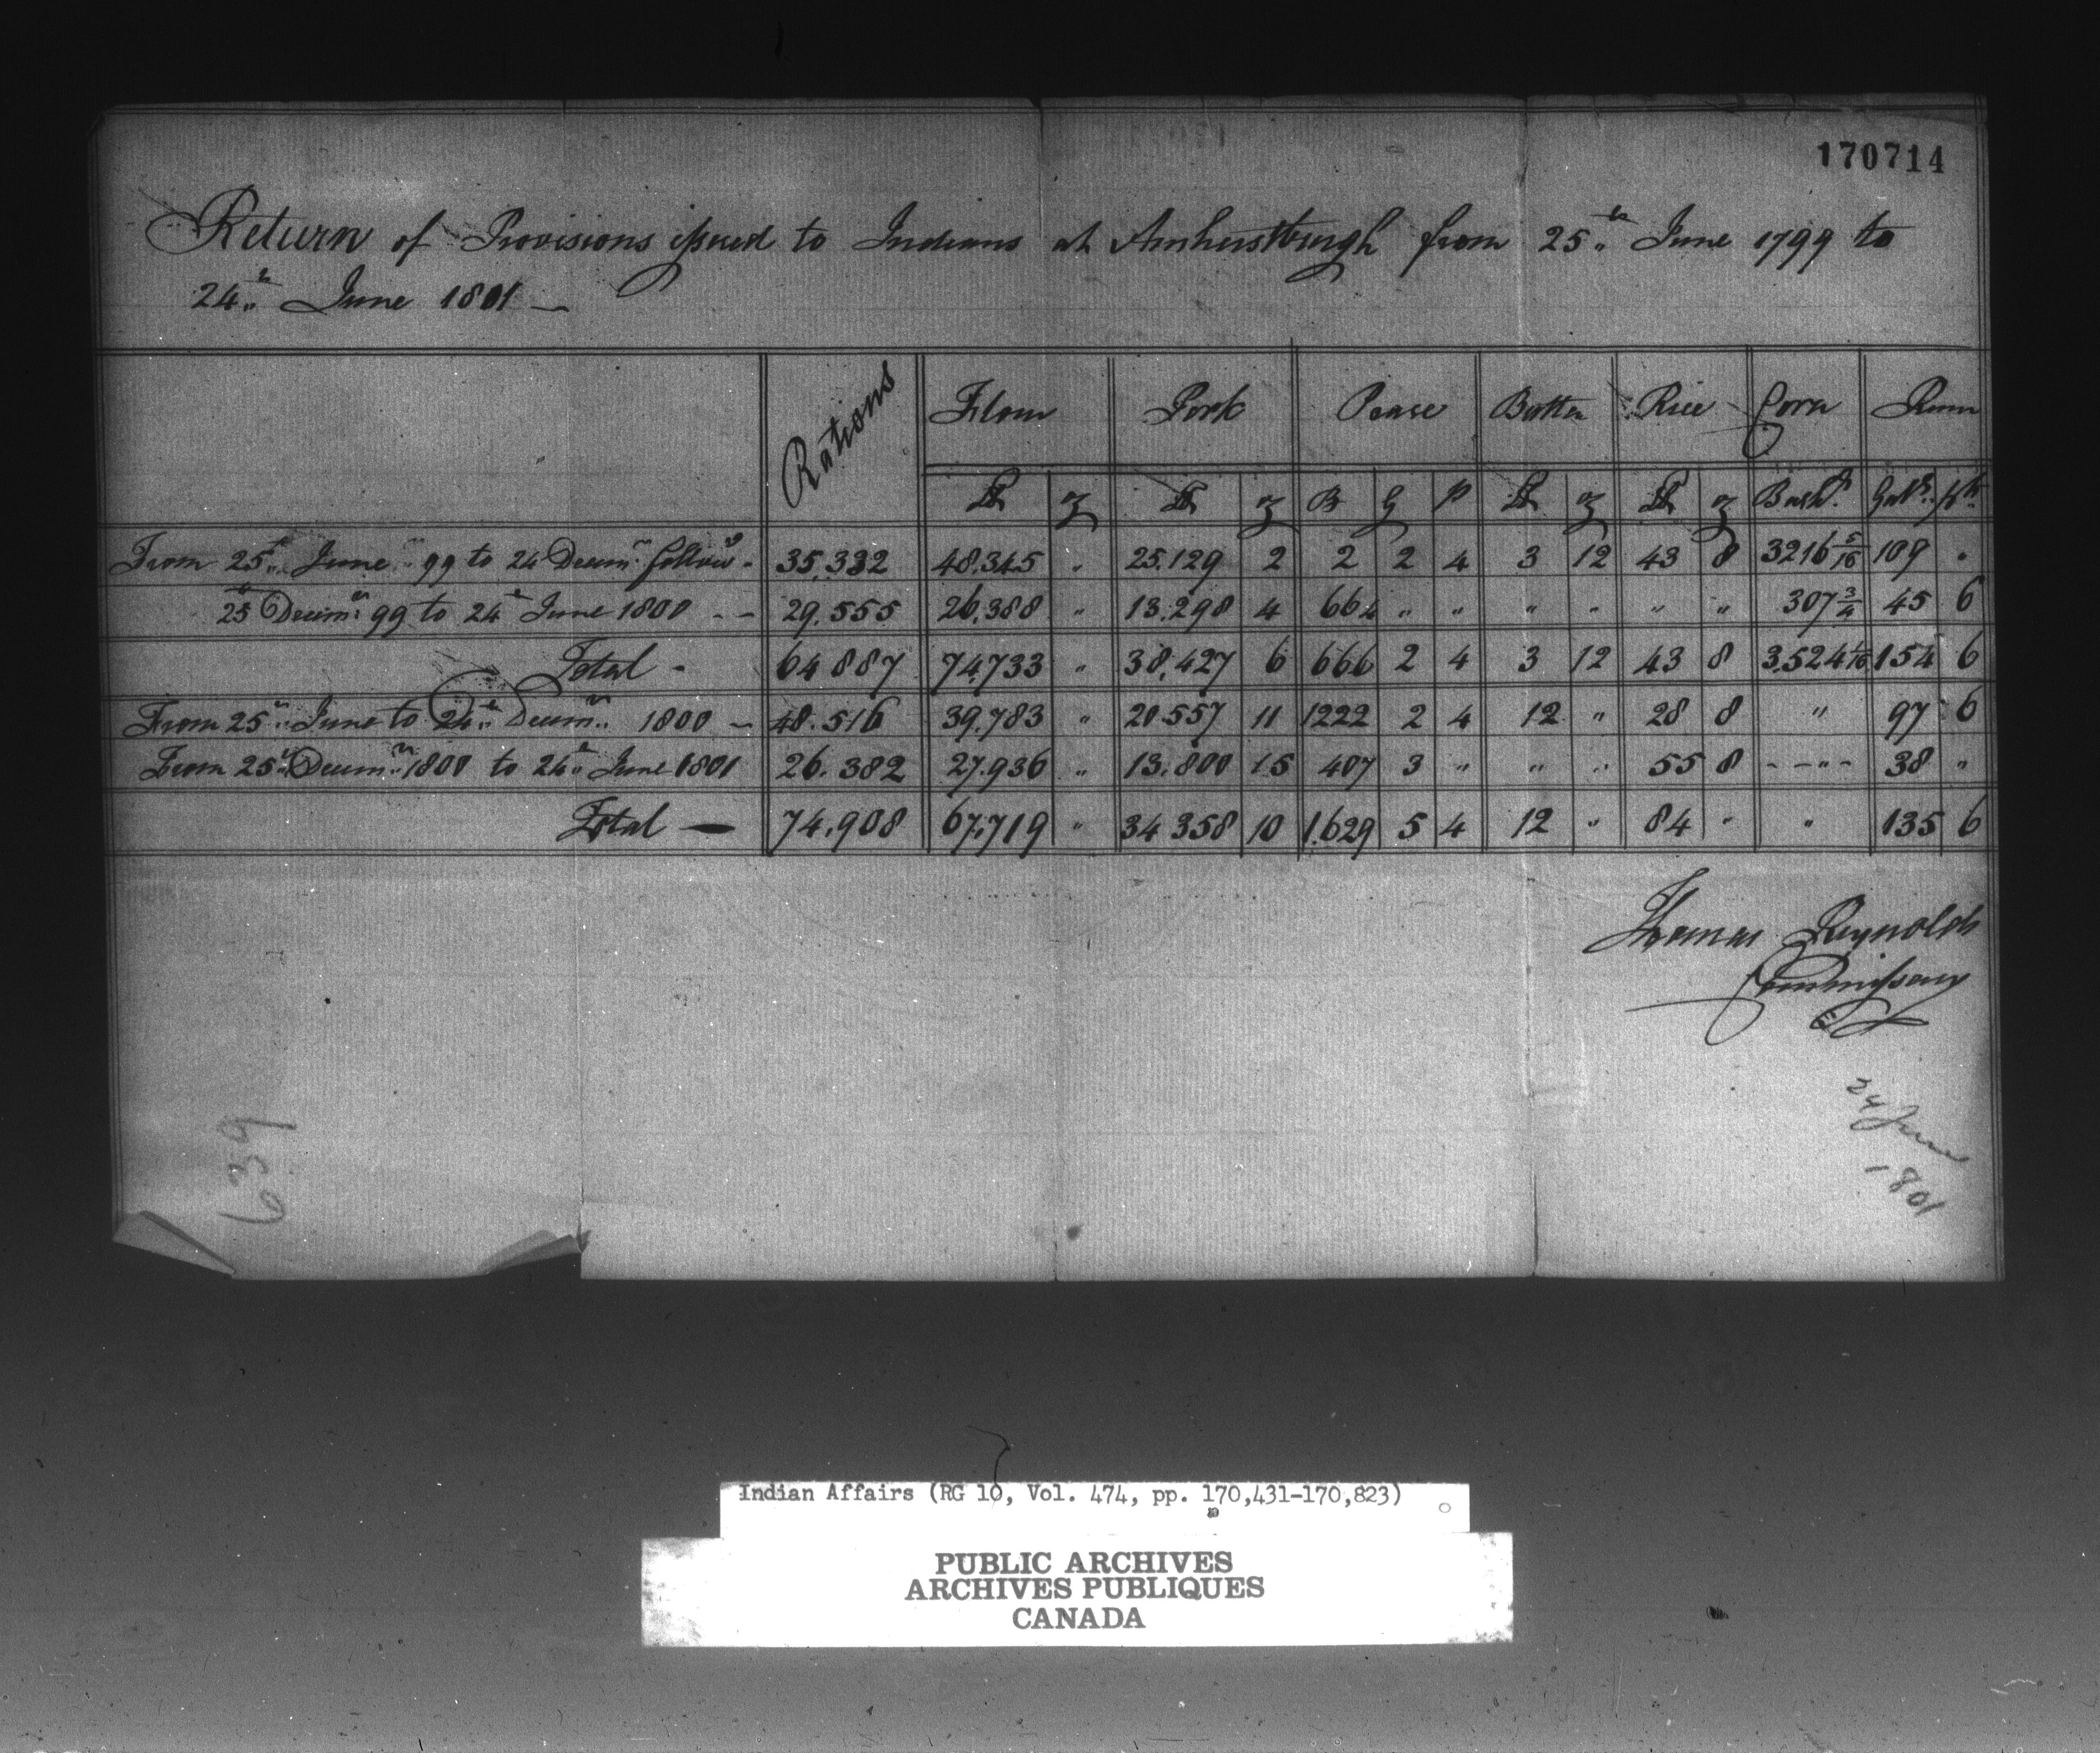 170714
Return of Provisions issued to Indians at Amherstburgh from 25th June 1799 to
24th June 1801 —
Rations Flour Pork Pease Butter Rice Corn Rum
lb oz lb oz B G P lb oz lb oz Bushs. Galls. pts.
From 25th June 99 to 24 Decemr. follow'g - 35,332 48,345 " 25,129 2 2 2 4 3 12 43 8 3216 5/16 109 "
25 Decemr. 99 to 24th June 1800 - - 29,555 26,388 " 13,298 4 664 " " " " " " 307 3/4 45 6
Total - 64887 74,733 " 38,427 6 666 2 4 3 12 43 8 3,524 1/16 154 6
From 25th June to 24th Decemr. 1800 - 48.516 39,783 " 20557 11 1222 2 4 12 " 28 8 " 97 6
From 25th Decemr. 1800 to 24th June 1801 26.382 27,936 " 13.800 15 407 3 " " " 55 8 - - " - - 38 "
Total — 74,908 67,719 " 34358 10 1,629 5 4 12 " 84 " " 135 6
Thomas Reynolds
Commissary
24 June
1801
639
Indian Affairs (RG 10, Vol. 474, pp. 170,431-170,823)
PUBLIC ARCHIVES
ARCHIVES PUBLIQUES
CANADA